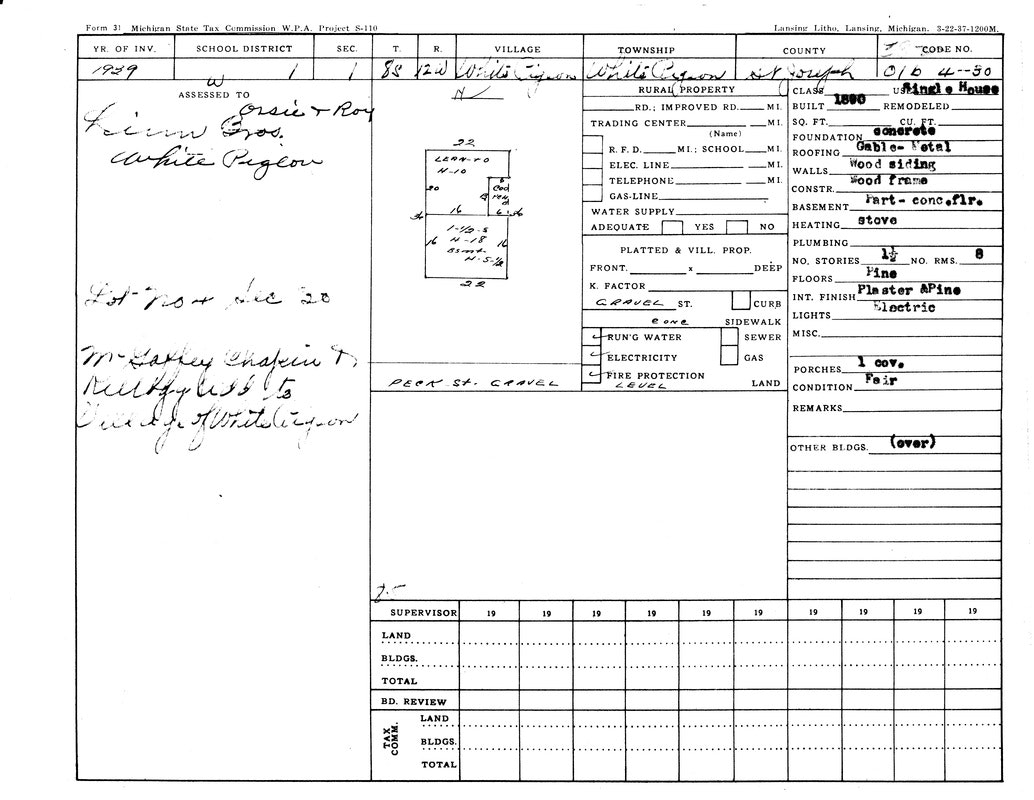 Form 31 Michigan State Tax Commission W.P.A. Project S-110
Lansing Litho, Lansing, Michigan. 3-22-37-1200M.
YR. OF INV. SCHOOL DISTRICT SEC. T. R. VILLAGE TOWNSHIP COUNTY CODE NO.
1939 W 1 1 8S 12W White Pigeon White Pigeon St Joseph 4--30
ASSESSED TO
Orsie + Roy
Bros.
White Pigeon
Lot No 4 Sec 20
Chapin &
Add to
Village of White Pigeon
N
22
LEAN-TO
H-10
20
6
8
16
6
1-1/2-S
H-18
16 16
Bsmt-
H-5-1/2
22
PECK ST. GRAVEL
RURAL PROPERTY
RD.; IMPROVED RD. MI.
TRADING CENTER MI.
(Name)
R. F. D. MI.; SCHOOL MI.
ELEC. LINE MI.
TELEPHONE MI.
GAS-LINE
WATER SUPPLY
ADEQUATE YES NO
PLATTED & VILL. PROP.
FRONT. x DEEP
K. FACTOR
GRAVEL ST. CURB
SIDEWALK
RUN'G WATER SEWER
ELECTRICITY GAS
FIRE PROTECTION
LEVEL LAND
CLASS Single House
BUILT 1890 REMODELED
SQ. FT. CU. FT.
FOUNDATION concrete
ROOFING Gable- Metal
WALLS Wood siding
CONSTR. Wood frame
BASEMENT Part- conc.flr.
HEATING stove
PLUMBING
NO. STORIES 1½ NO. RMS. 8
FLOORS Pine
INT. FINISH Plaster &Pine
LIGHTS Electric
MISC.
PORCHES 1 cov.
CONDITION Fair
REMARKS
OTHER BLDGS. (over)
SUPERVISOR 19 19 19 19 19 19 19 19 19 19
LAND
BLDGS.
TOTAL
BD. REVIEW
TAX COMM.
LAND
BLDGS.
TOTAL